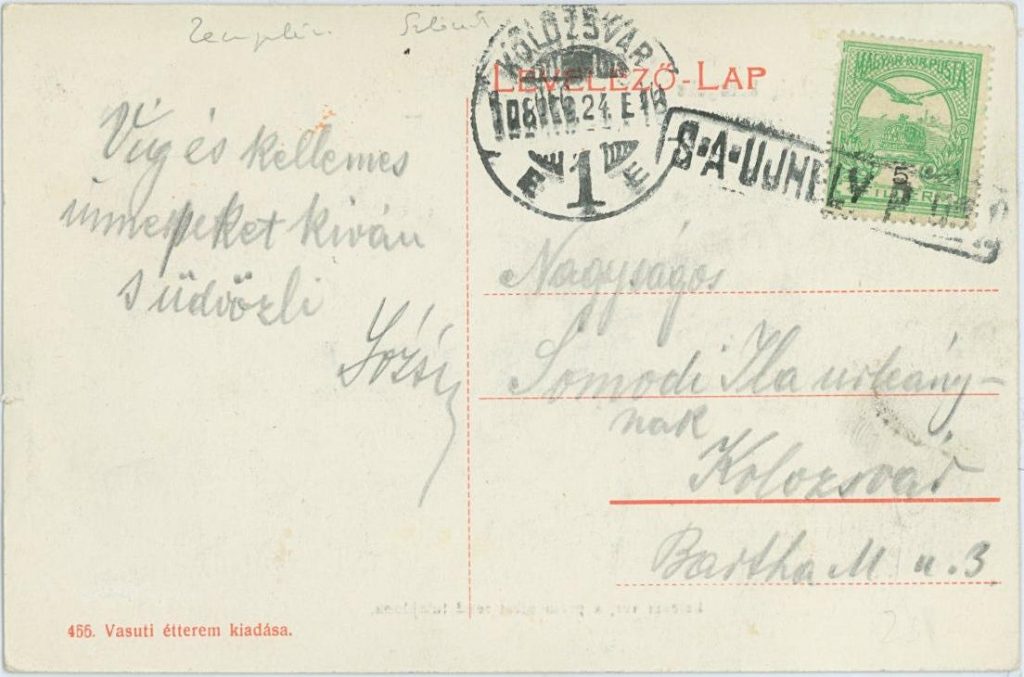 Zemplén
KOLOZSVÁR
LEVELEZŐ-LAP
MAGYAR KIR. POSTA
S·A·UJHELY P.U.
5
1
E E
Vig és kellemes
ünnepeket kiván
s üdvözli
Józsi
Nagyságos
Somodi Ila urleány-
nak
Kolozsvár
Bartha M u. 3
455. Vasuti étterem kiadása.